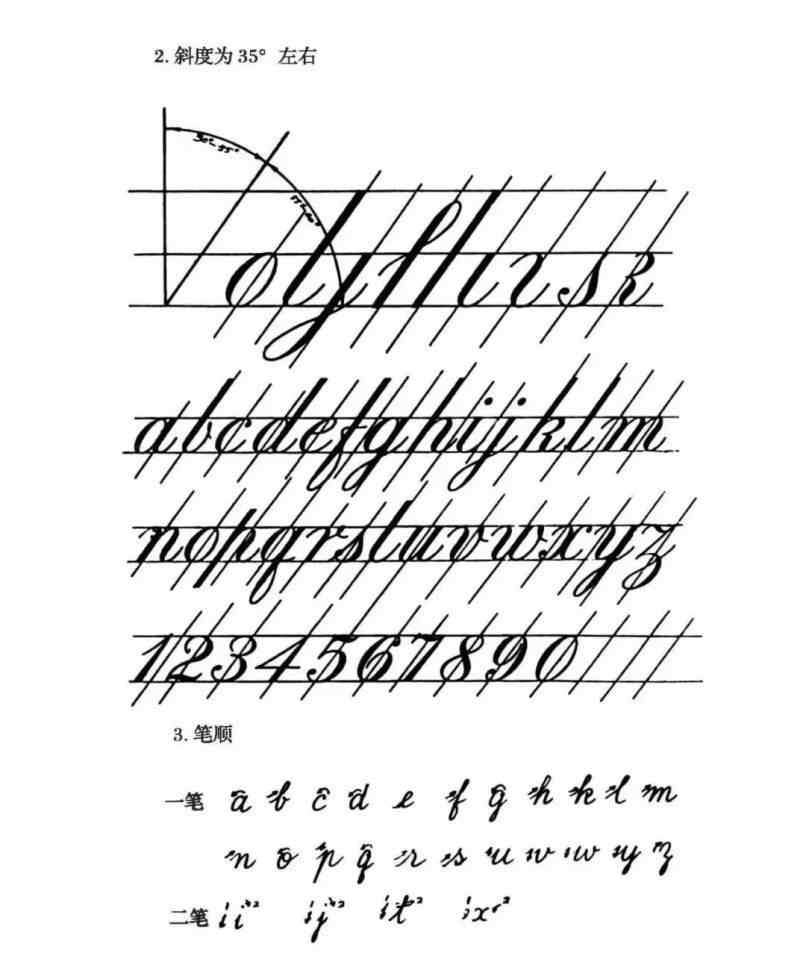 2. 斜度为 35° 左右
abcdefghijklm
nopqrstuvwxyz
1234567890
3. 笔顺
一笔 a b c d e f g h k l m
n o p q r s u v w y z
二笔 i j t x